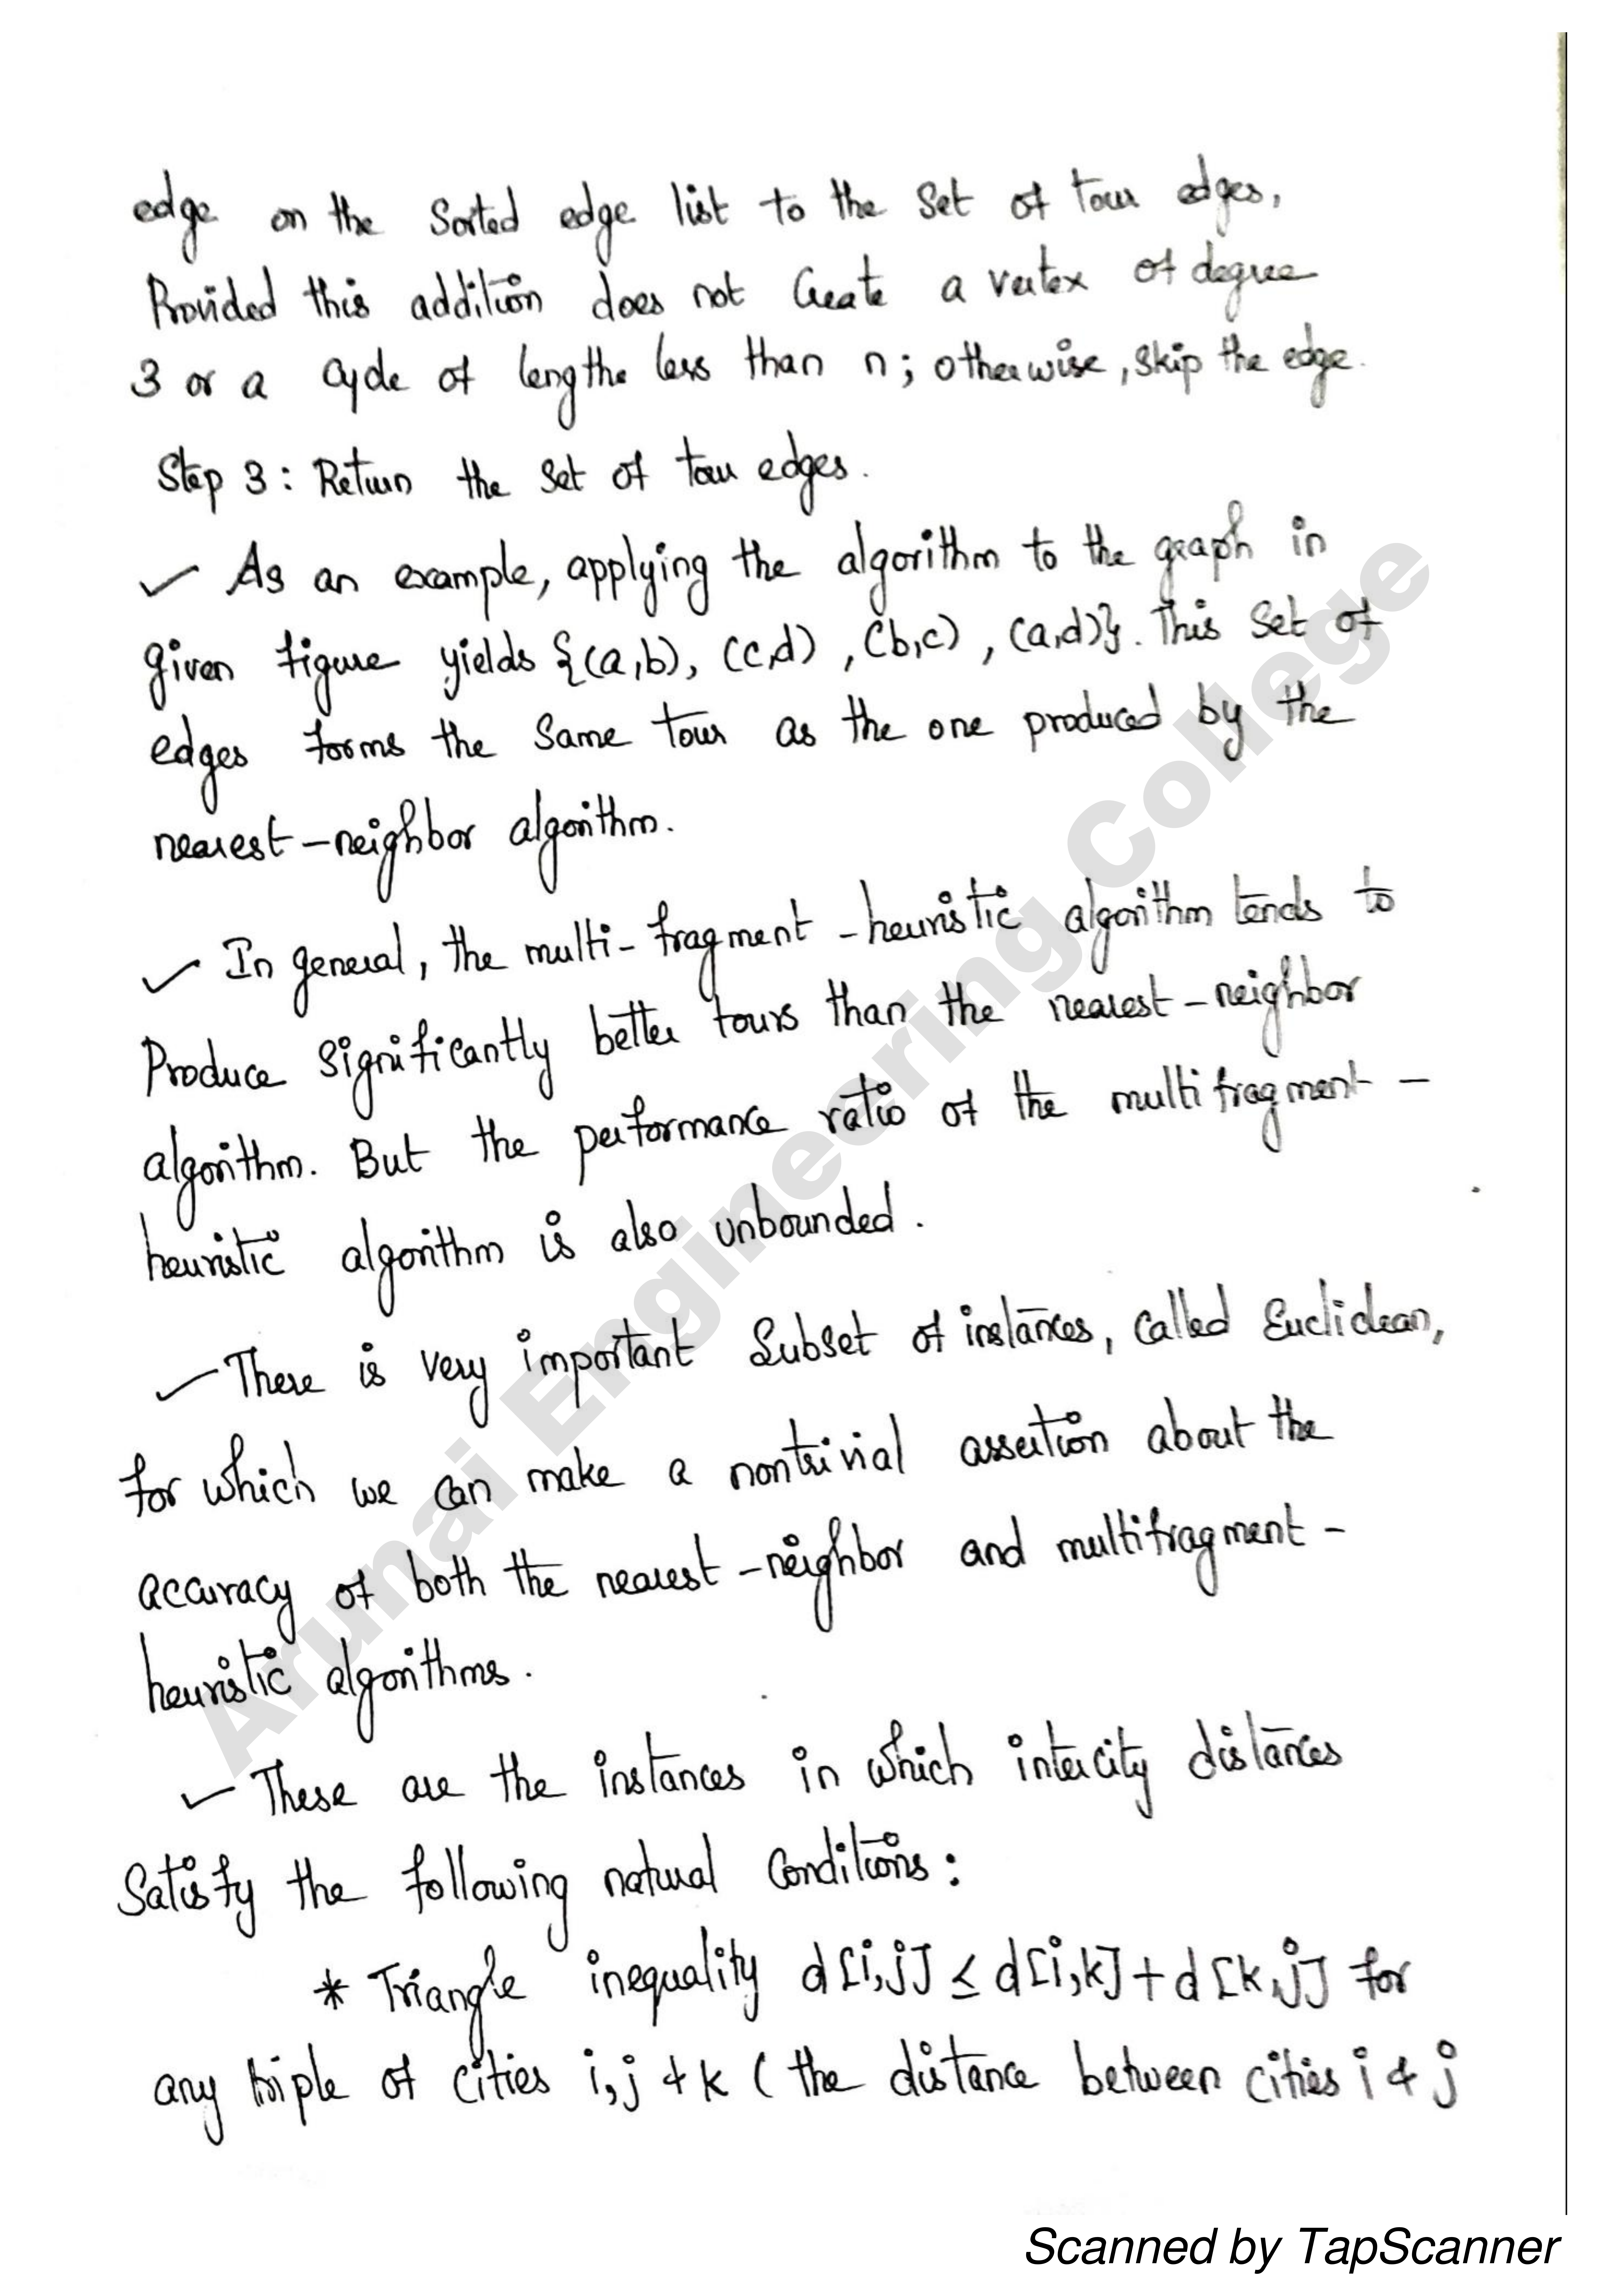 edge on the Sorted edge list to the set of tour edges,
Provided this addition does not Create a vertex of degree
3 or a Cycle of lengthe less than n; otherwise, skip the edge.
Step 3: Return the set of tour edges.
✓ As an example, applying the algorithm to the graph in
given figure yields {(a,b), (c,d), (b,c), (a,d)}. This set of
edges forms the same tour as the one produced by the
nearest-neighbor algorithm.
✓ In general, the multi-fragment-heuristic algorithm tends to
Produce significantly better tours than the nearest-neighbor
algorithm. But the performance ratio of the multifragment-
heuristic algorithm is also unbounded.
✓ There is very important Subset of instances, called Euclidean,
for which we can make a nontrivial assertion about the
accuracy of both the nearest-neighbor and multifragment-
heuristic algorithms.
✓ These are the instances in which intercity distances
Satisfy the following natural Conditions:
* Triangle inequality d[i,j] ≤ d[i,k] + d[k,j] for
any triple of cities i,j & k (the distance between cities i & j
Arunai Engineering College
Scanned by TapScanner